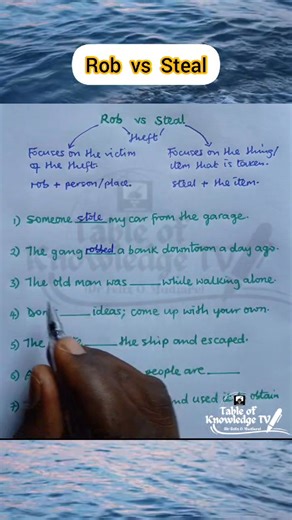 Rob vs Steal
Rob vs Steal
"theft"
Focuses on the victim
of the theft.
rob + person/place.
Focuses on the thing/
item that is taken.
steal + the item.
1) Someone stole my car from the garage.
2) The gang robbed a bank downtown a day ago.
3) The old man was ____ while walking alone.
4) Don ____ ideas; come up with your own.
5) The ____ the ship and escaped.
6) people are ____
7) nd used it to obtain
Table of
Knowledge TV